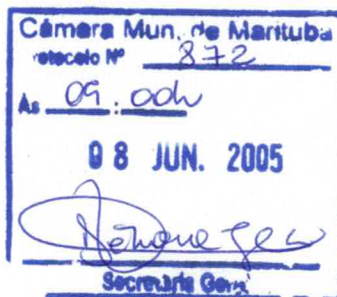 Câmara Mun. de Marituba
Protocolo Nº 872
Às 09:00h
08 JUN. 2005
Secretaria Geral